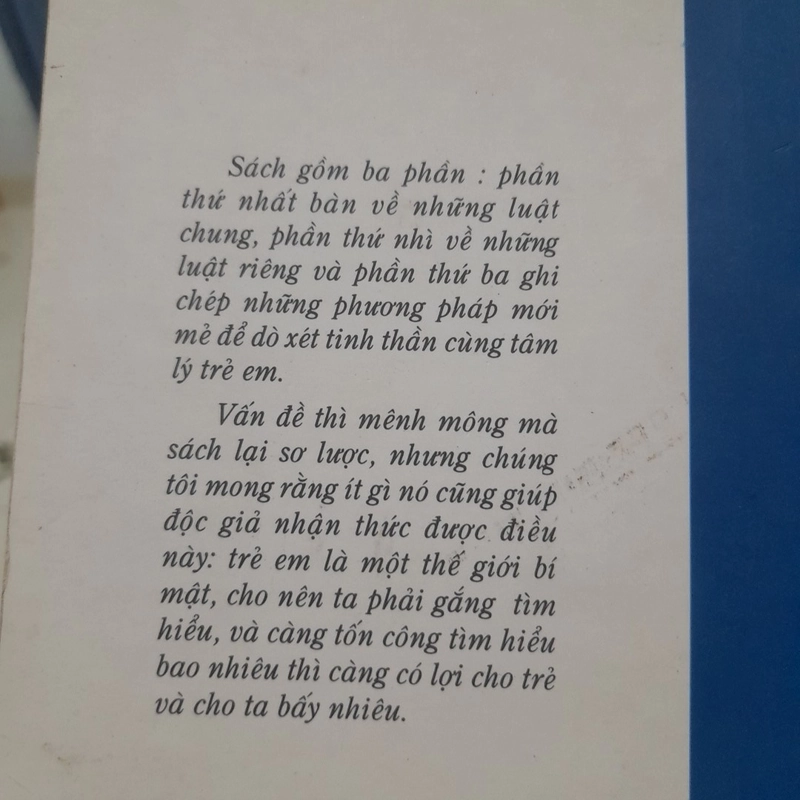 Sách gồm ba phần : phần
thứ nhất bàn về những luật
chung, phần thứ nhì về những
luật riêng và phần thứ ba ghi
chép những phương pháp mới
mẻ để dò xét tinh thần cùng tâm
lý trẻ em.
Vấn đề thì mênh mông mà
sách lại sơ lược, nhưng chúng
tôi mong rằng ít gì nó cũng giúp
độc giả nhận thức được điều
này: trẻ em là một thế giới bí
mật, cho nên ta phải gắng tìm
hiểu, và càng tốn công tìm hiểu
bao nhiêu thì càng có lợi cho trẻ
và cho ta bấy nhiêu.